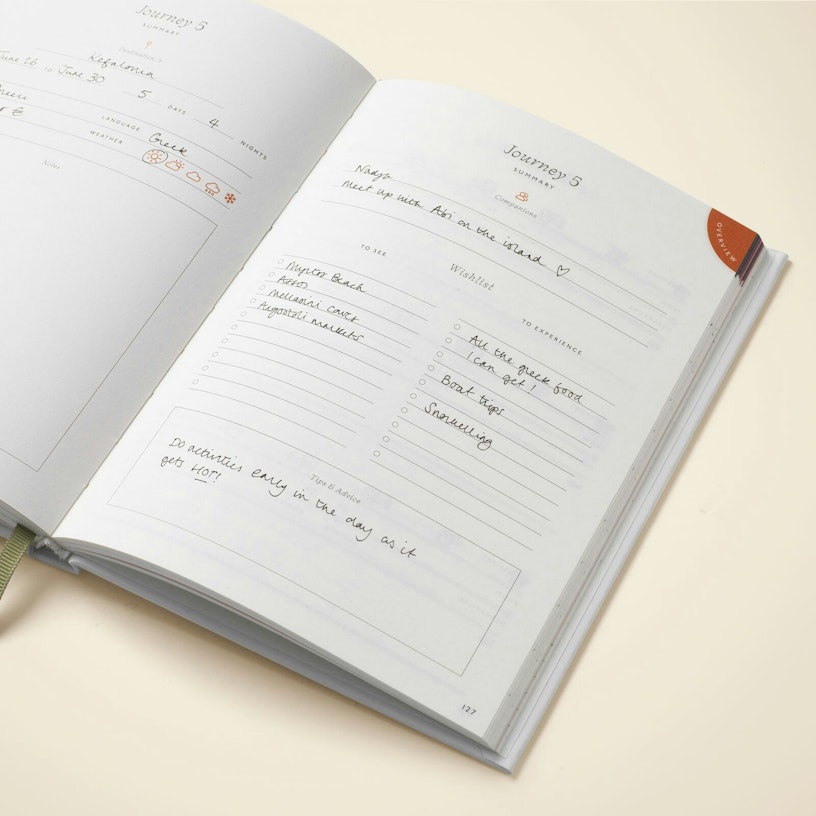 Journey 5
SUMMARY
Destination/s
Kefalonia
June 26 TO June 30
5 DAYS 4 NIGHTS
LANGUAGE Greek
WEATHER
Notes
Journey 5
SUMMARY
Companions
Meet up with Abi on the island ♡
Wishlist
TO SEE
Myrtos Beach
Assos
Melissini caves
Argostoli markets
TO EXPERIENCE
All the greek food
I can get!
Boat trips
Snorkelling
Tips & Advice
Do activities early in the day as it
gets HOT!
127
OVERVIEW